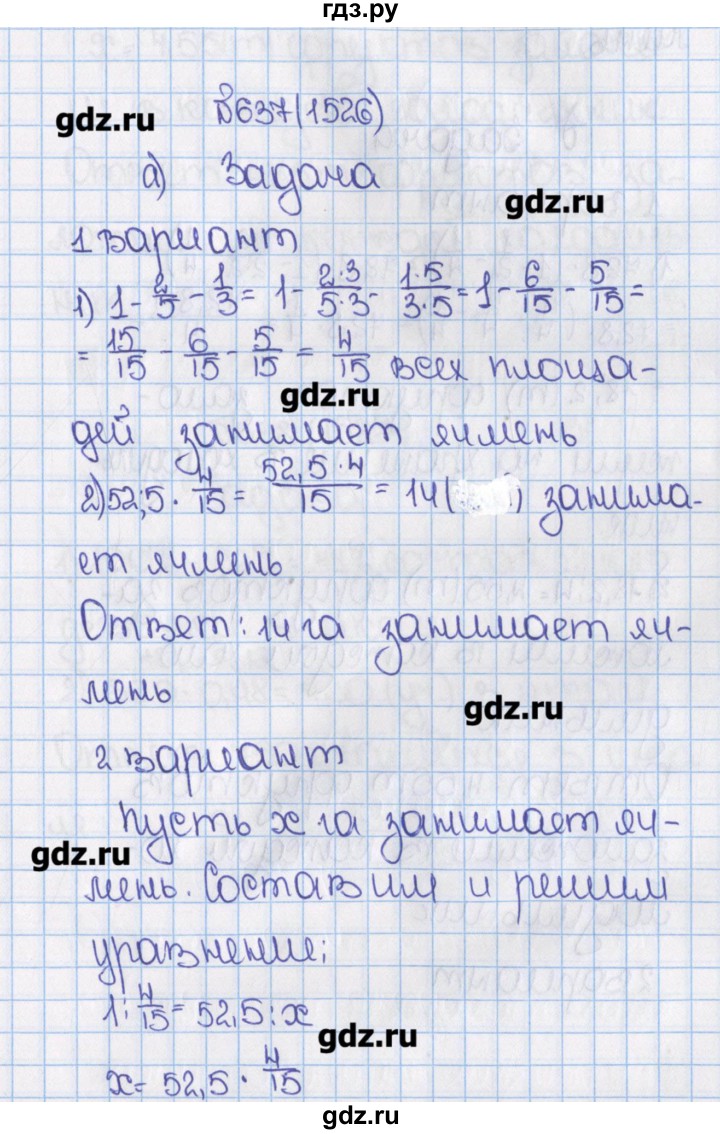 гдз.ру
№637(1526)
gdz.ru
а) Задача
gdz.ru
1 вариант
1) 1 - 2/5 - 1/3 = 1 - 2·3/5·3 - 1·5/3·5 = 1 - 6/15 - 5/15 =
= 15/15 - 6/15 - 5/15 = 4/15 всех площа-
gdz.ru
дей занимает ячмень
2) 52,5 · 4/15 = 52,5·4/15 = 14( ) занима-
ет ячмень
Ответ: 14 га занимает яч-
мень
gdz.ru
2 вариант
Пусть x га занимает яч-
gdz.ru
мень. Составим и решим
уравнение:
1 : 4/15 = 52,5 : x
gdz.ru
x = 52,5 · 4/15
gdz.ru